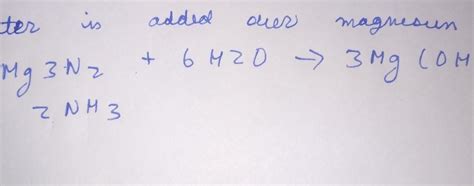 ter is added over magnesiun
Mg3N2 + 6H2O → 3Mg(OH
2NH3